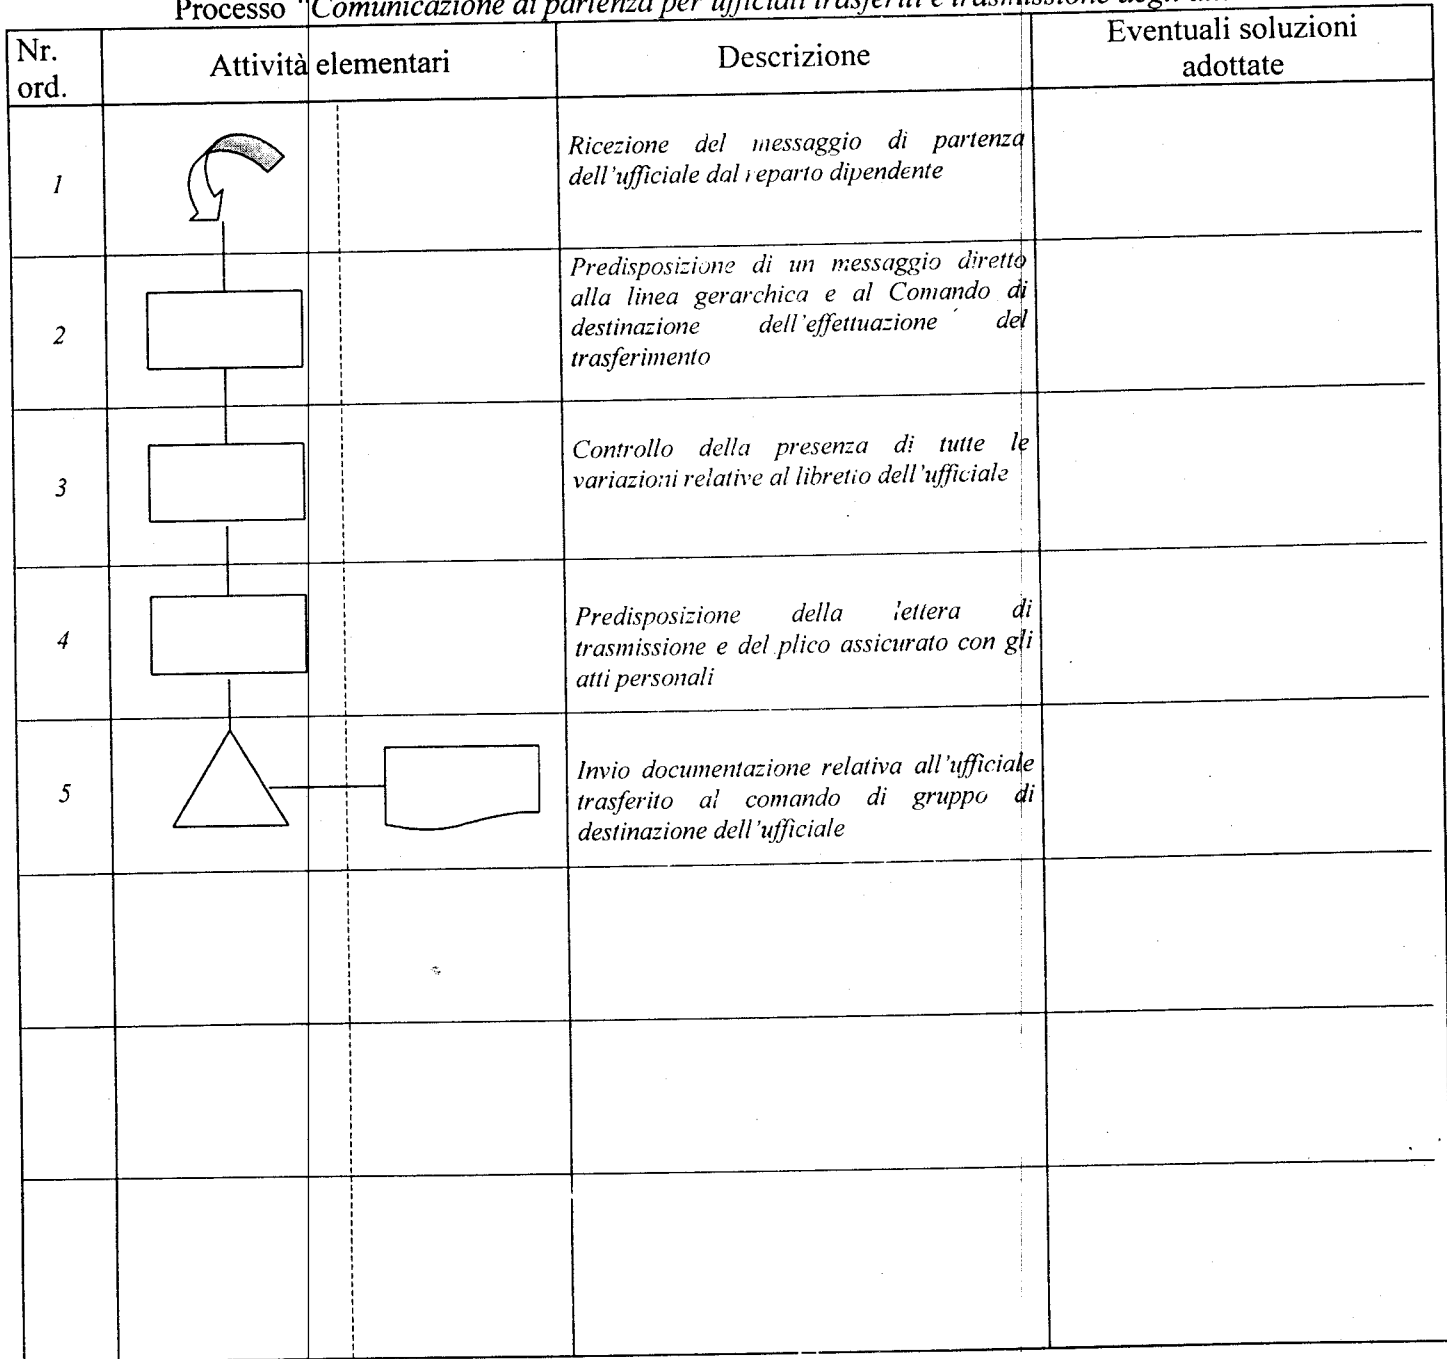 Processo "Comunicazione di partenza per ufficiali trasferiti e trasmissione degli
Nr.
ord.
Attività elementari
Descrizione
Eventuali soluzioni
adottate
1
Ricezione del messaggio di partenza
dell'ufficiale dal reparto dipendente
2
Predisposizione di un messaggio diretto
alla linea gerarchica e al Comando di
destinazione dell'effettuazione del
trasferimento
3
Controllo della presenza di tutte le
variazioni relative al libretto dell'ufficiale
4
Predisposizione della lettera di
trasmissione e del plico assicurato con gli
atti personali
5
Invio documentazione relativa all'ufficiale
trasferito al comando di gruppo di
destinazione dell'ufficiale